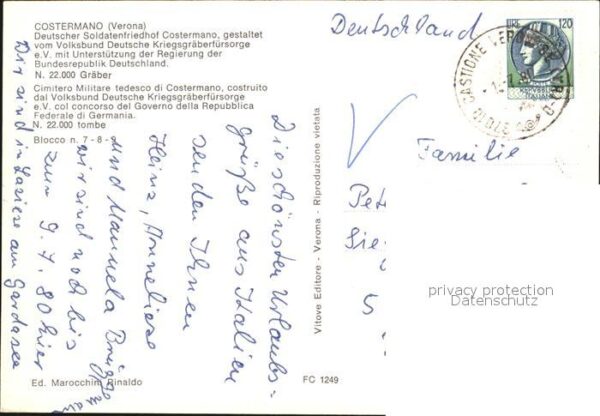 COSTERMANO (Verona)
Deutscher Soldatenfriedhof Costermano, gestaltet
vom Volksbund Deutsche Kriegsgräberfürsorge
e.V. mit Unterstützung der Regierung der
Bundesrepublik Deutschland.
N. 22.000 Gräber
Cimitero Militare tedesco di Costermano, costruito
dal Volksbund Deutsche Kriegsgräberfürsorge
e.V. col concorso del Governo della Repubblica
Federale di Germania.
N. 22.000 tombe
Blocco n. 7 - 8 -
Die schönsten Urlaubs=
grüße aus Italien
senden Ihnen
Heinz, Anneliese
und Manuela
wir sind noch bis
zum 9.7.80 hier
Wir sind in Lazise am Gardasee
Ed. Marocchini Rinaldo
FC 1249
Vitove Editore - Verona - Riproduzione vietata
Deutschland
LIRE 120
REPVBBLICA
ITALIANA
37010
Familie
Pet
Sie
5
privacy protection
Datenschutz